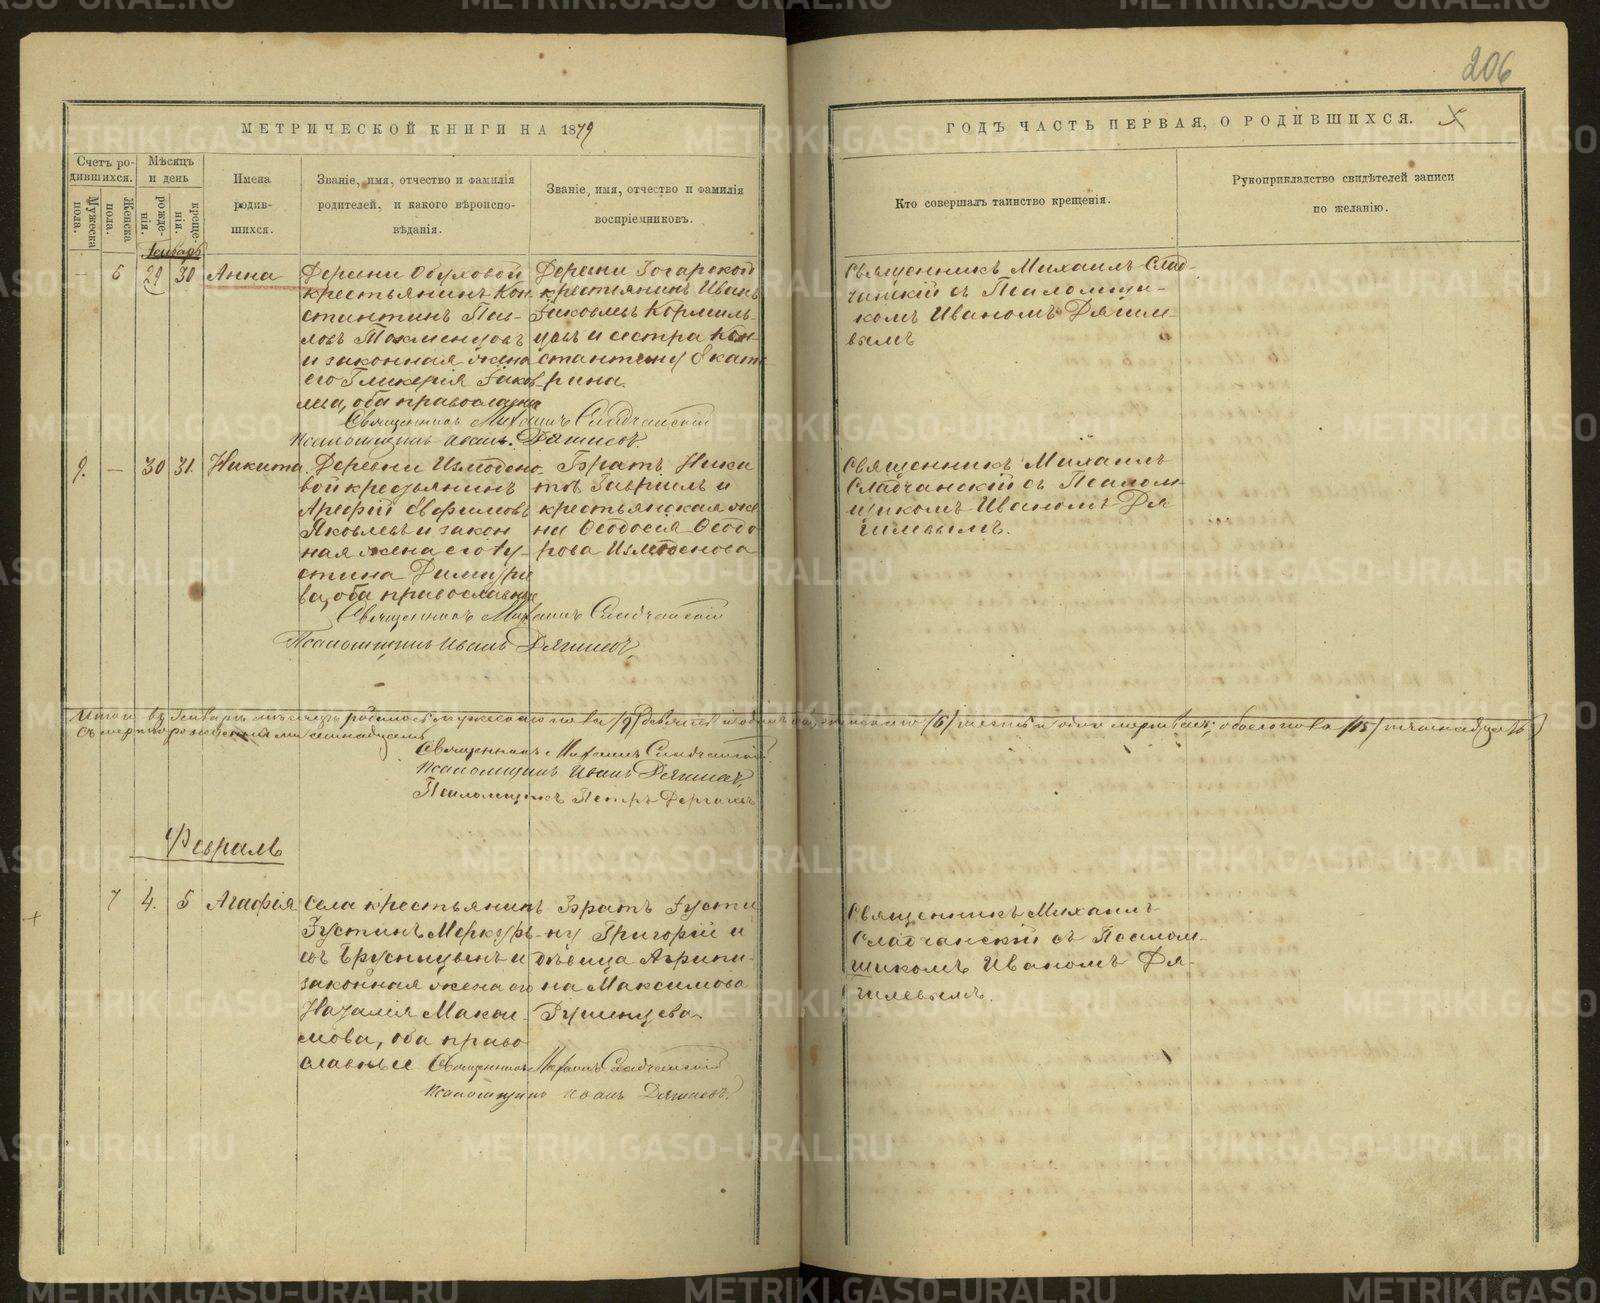 206
МЕТРИЧЕСКОЙ КНИГИ НА 1879
ГОДЪ ЧАСТЬ ПЕРВАЯ, О РОДИВШИХСЯ.
Счетъ ро-
дившихся.
Мужеска пола.
Женска пола.
Мѣсяцъ
и день
рожде-
нія.
креще-
нія.
Имена
родив-
шихся.
Званіе, имя, отчество и фамилія
родителей, и какого вѣроиспо-
вѣданія.
Званіе, имя, отчество и фамилія
воспріемниковъ.
Кто совершалъ таинство крещенія.
Рукоприкладство свидѣтелей записи
по желанію.
Генварь
— 6 29 30 Анна
Деревни Обуховой
крестьянинъ Кон-
стантинъ Пав-
ловъ Токменцовъ
и законная жена
его Гликерія Іаков-
лева, оба православные
крестьянинъ Иванъ
Іаковлевъ Кормиль-
цевъ и сестра Кон-
стантину Екате-
рина.
Священникъ Михаилъ Слад-
чанскій съ Псаломщи-
комъ Иваномъ Дягиле-
вымъ
Священникъ Михаилъ Сладчанскій
Псаломщикъ Иванъ Дягилевъ.
9. — 30 31. Никита
Деревни Измодено-
вой крестьянинъ
Арефій Евфимовъ
Яковлевъ и закон-
ная жена его Іу-
стина Димитріе-
ва, оба православные
Братъ Ники-
тѣ Гавріилъ и
крестьянская же-
на Ѳеодосія Ѳеодо-
рова Измоденова
Священникъ Михаилъ
Сладчанскій съ Псалом-
щикомъ Иваномъ Дя-
гилевымъ.
Священникъ Михаилъ Сладчанскій
Псаломщикъ Иванъ Дягилевъ
Итого въ Генварѣ мѣсяцѣ родилось мужескаго пола /9/ девять и женскаго /6/ шесть обоего пола /15/ пятнадцать
Священникъ Михаилъ Сладчанскій
Псаломщикъ Иванъ Дягилевъ
Псаломщикъ Петръ Дергачевъ
Февраль
7 4. 5 Агафія
Села крестьянинъ
Іустинъ Меркурь-
евъ Брусницынъ и
законная жена его
Наталія Макси-
мова, оба право-
славные
Братъ Іусти-
ну Григорій и
дѣвица Агрипи-
на Максимова
Священникъ Михаилъ
Сладчанскій съ Псалом-
щикомъ Иваномъ Дя-
гилевымъ.
Священникъ Михаилъ Сладчанскій
Псаломщикъ Иванъ Дягилевъ.
METRIKI.GASO-URAL.RU